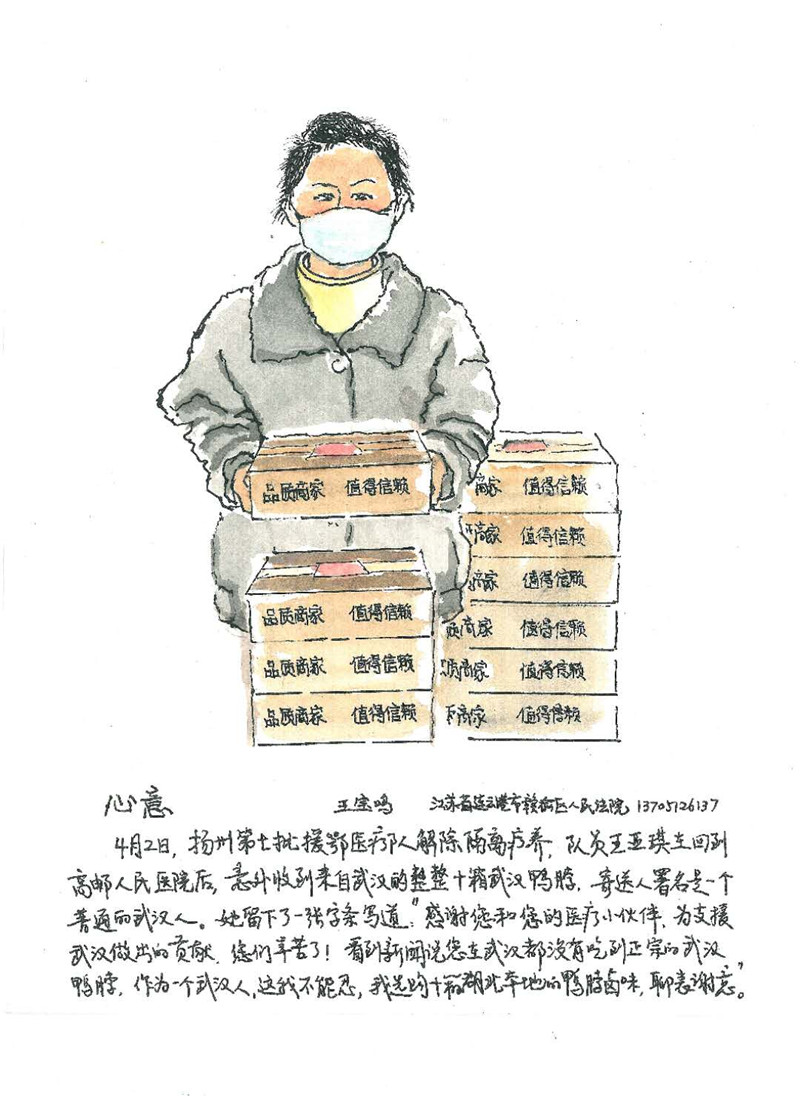 品质商家 值得信赖
商家 值得信赖
质商家 值得信赖
商家 值得信赖
品质商家 值得信赖
质商家 值得信赖
品质商家 值得信赖
质商家 值得信赖
品质商家 值得信赖
商家 值得信赖
心意 王宝鸣 江苏省连云港市赣榆区人民法院 13705126137
4月2日，扬州第七批援鄂医疗队人解除隔离疗养，队员王亚琪在回到
高邮人民医院后，意外收到来自武汉的整整十箱武汉鸭脖，寄送人署名是一个
普通的武汉人。她留下了一张字条写道：“感谢您和您的医疗小伙伴，为支援
武汉做出的贡献，您们辛苦了！看到新闻说您在武汉都没有吃到正宗的武汉
鸭脖，作为一个武汉人，这我不能忍，我选购十箱湖北本地的鸭脖卤味，聊表谢意。”